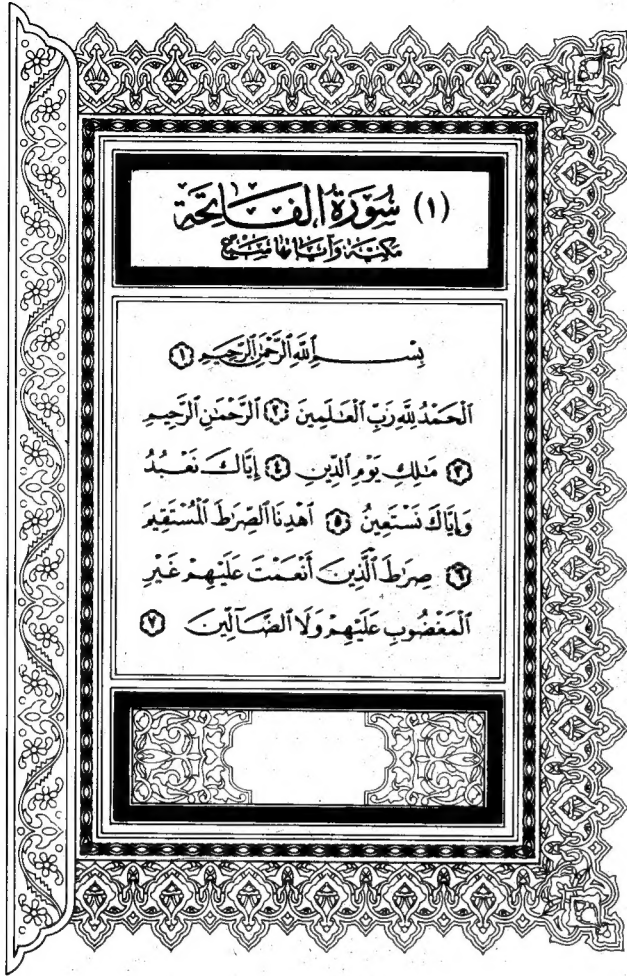 (١) سُورَةُ الْفَاتِحَةِ
مكية وآياتها سبع
بِسْمِ ٱللَّهِ ٱلرَّحْمَٰنِ ٱلرَّحِيمِ ١
ٱلْحَمْدُ لِلَّهِ رَبِّ ٱلْعَٰلَمِينَ ٢ ٱلرَّحْمَٰنِ ٱلرَّحِيمِ
٣ مَٰلِكِ يَوْمِ ٱلدِّينِ ٤ إِيَّاكَ نَعْبُدُ
وَإِيَّاكَ نَسْتَعِينُ ٥ ٱهْدِنَا ٱلصِّرَٰطَ ٱلْمُسْتَقِيمَ
٦ صِرَٰطَ ٱلَّذِينَ أَنْعَمْتَ عَلَيْهِمْ غَيْرِ
ٱلْمَغْضُوبِ عَلَيْهِمْ وَلَا ٱلضَّآلِّينَ ٧